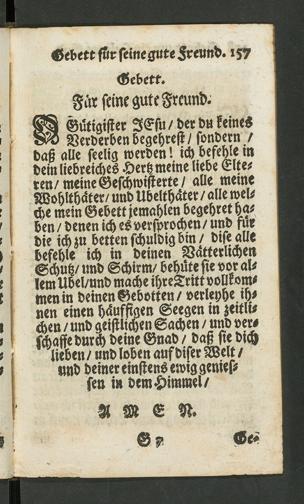 Gebett für seine gute Freund. 157
Gebett.
Für seine gute Freund.
O Gütigister JEsu / der du keines
Verderben begehrest / sondern /
daß alle seelig werden! ich befehle in
dein liebreiches Hertz meine liebe Elte-
ren / meine Geschwisterte / alle meine
Wohlthäter / und Ubelthäter / alle wel-
che mein Gebett jemahlen begehret ha-
ben / denen ich es versprochen / und für
die ich zu betten schuldig bin / dise alle
befehle ich in deinen Vätterlichen
Schutz / und Schirm / behüte sie vor al-
lem Ubel / und mache ihre Tritt vollkom-
men in deinen Gebotten / verleyhe ih-
nen einen häuffigen Seegen in zeitli-
chen / und geistlichen Sachen / und ver-
schaffe durch deine Gnad / daß sie dich
lieben / und loben auf diser Welt /
und deiner einstens ewig genies-
sen in dem Himmel /
A M E N.
Ge-